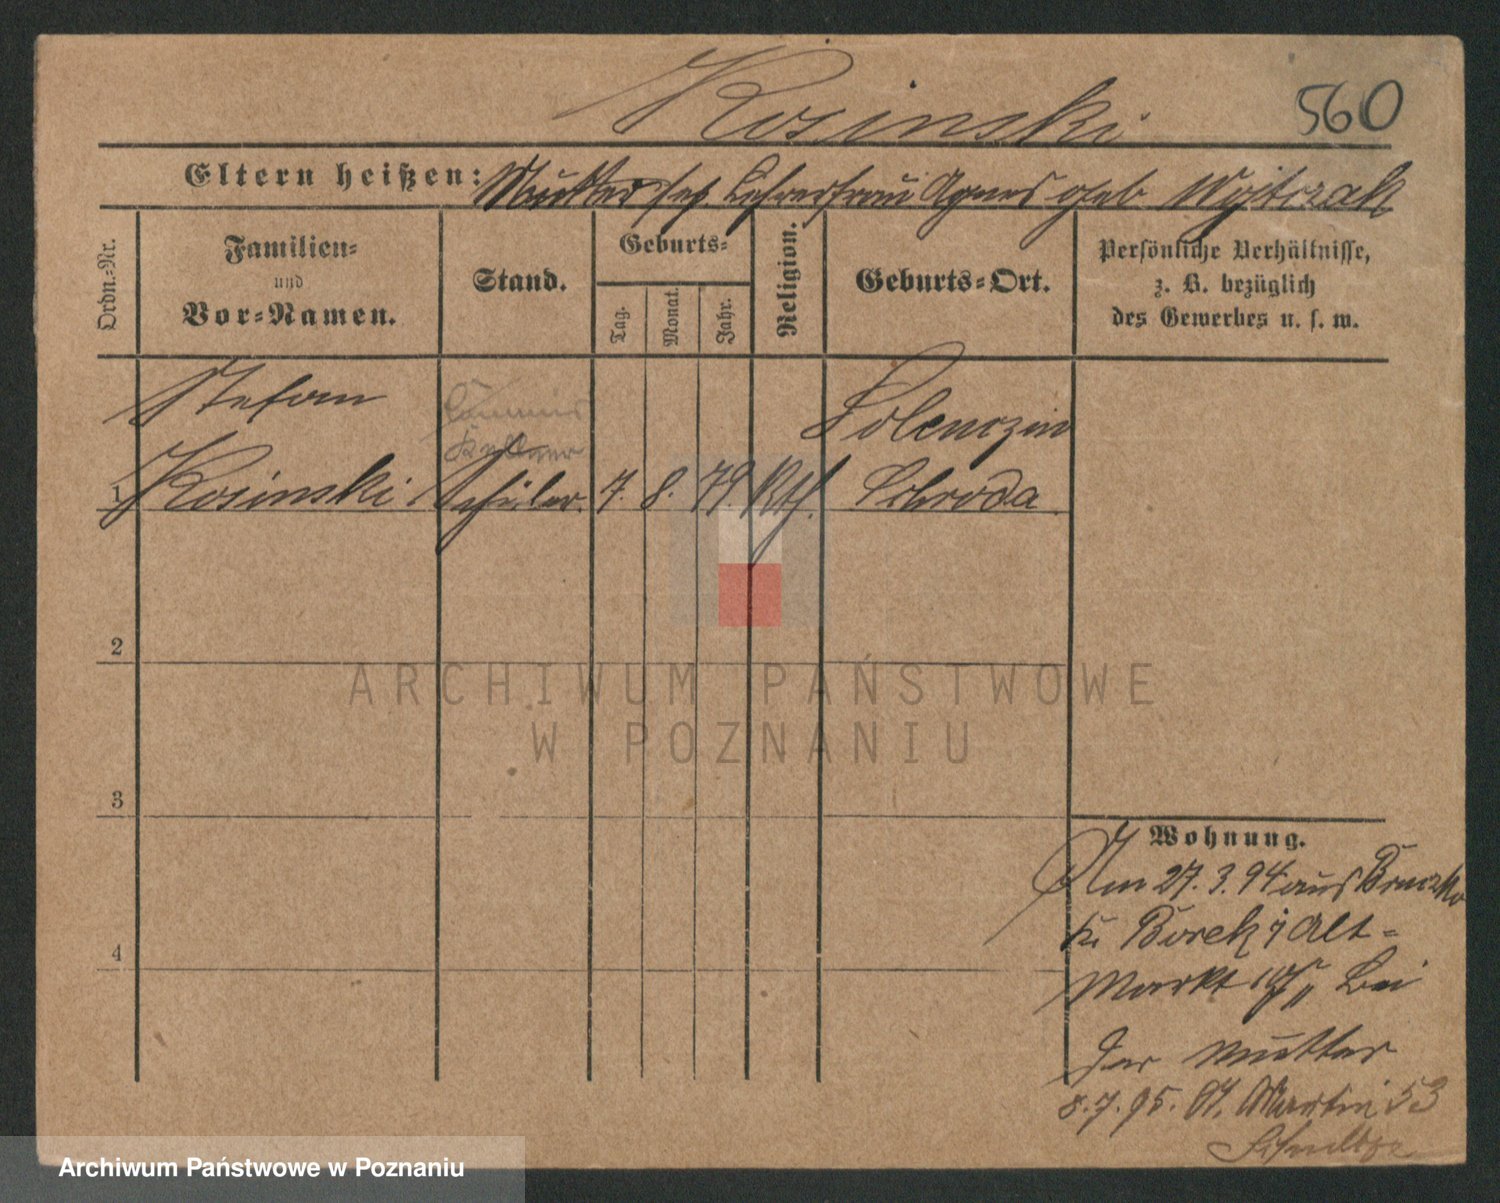 Kosinski
560
Eltern heißen: Mutter sep. Lehrerfrau Agnes geb Wojtczak
Ordn.-Nr.
Familien-
und
Vor-Namen.
Stand.
Geburts-
Tag.
Monat.
Jahr.
Religion.
Geburts-Ort.
Persönliche Verhältnisse,
z. B. bezüglich
des Gewerbes u. s. w.
Stefan
Kosinski
1
Schüler.
7.
8.
79.
Kth.
Schroda
2
3
4
Wohnung.
Am 27.3.94 aus
zu Borek Alt-
Markt bei
der Mutter
8.7.95. St. Martin 53
ARCHIWUM PAŃSTWOWE
W POZNANIU
Archiwum Państwowe w Poznaniu